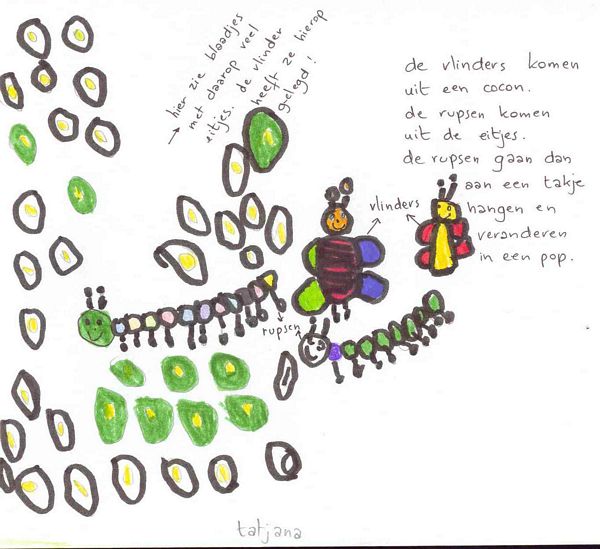 → hier zie blaadjes
met daarop veel
eitjes. de vlinder
heeft ze hierop
gelegd!
de vlinders komen
uit een cocon.
de rupsen komen
uit de eitjes.
de rupsen gaan dan
aan een takje
hangen en
veranderen
in een pop.
vlinders
rupsen
tatjana